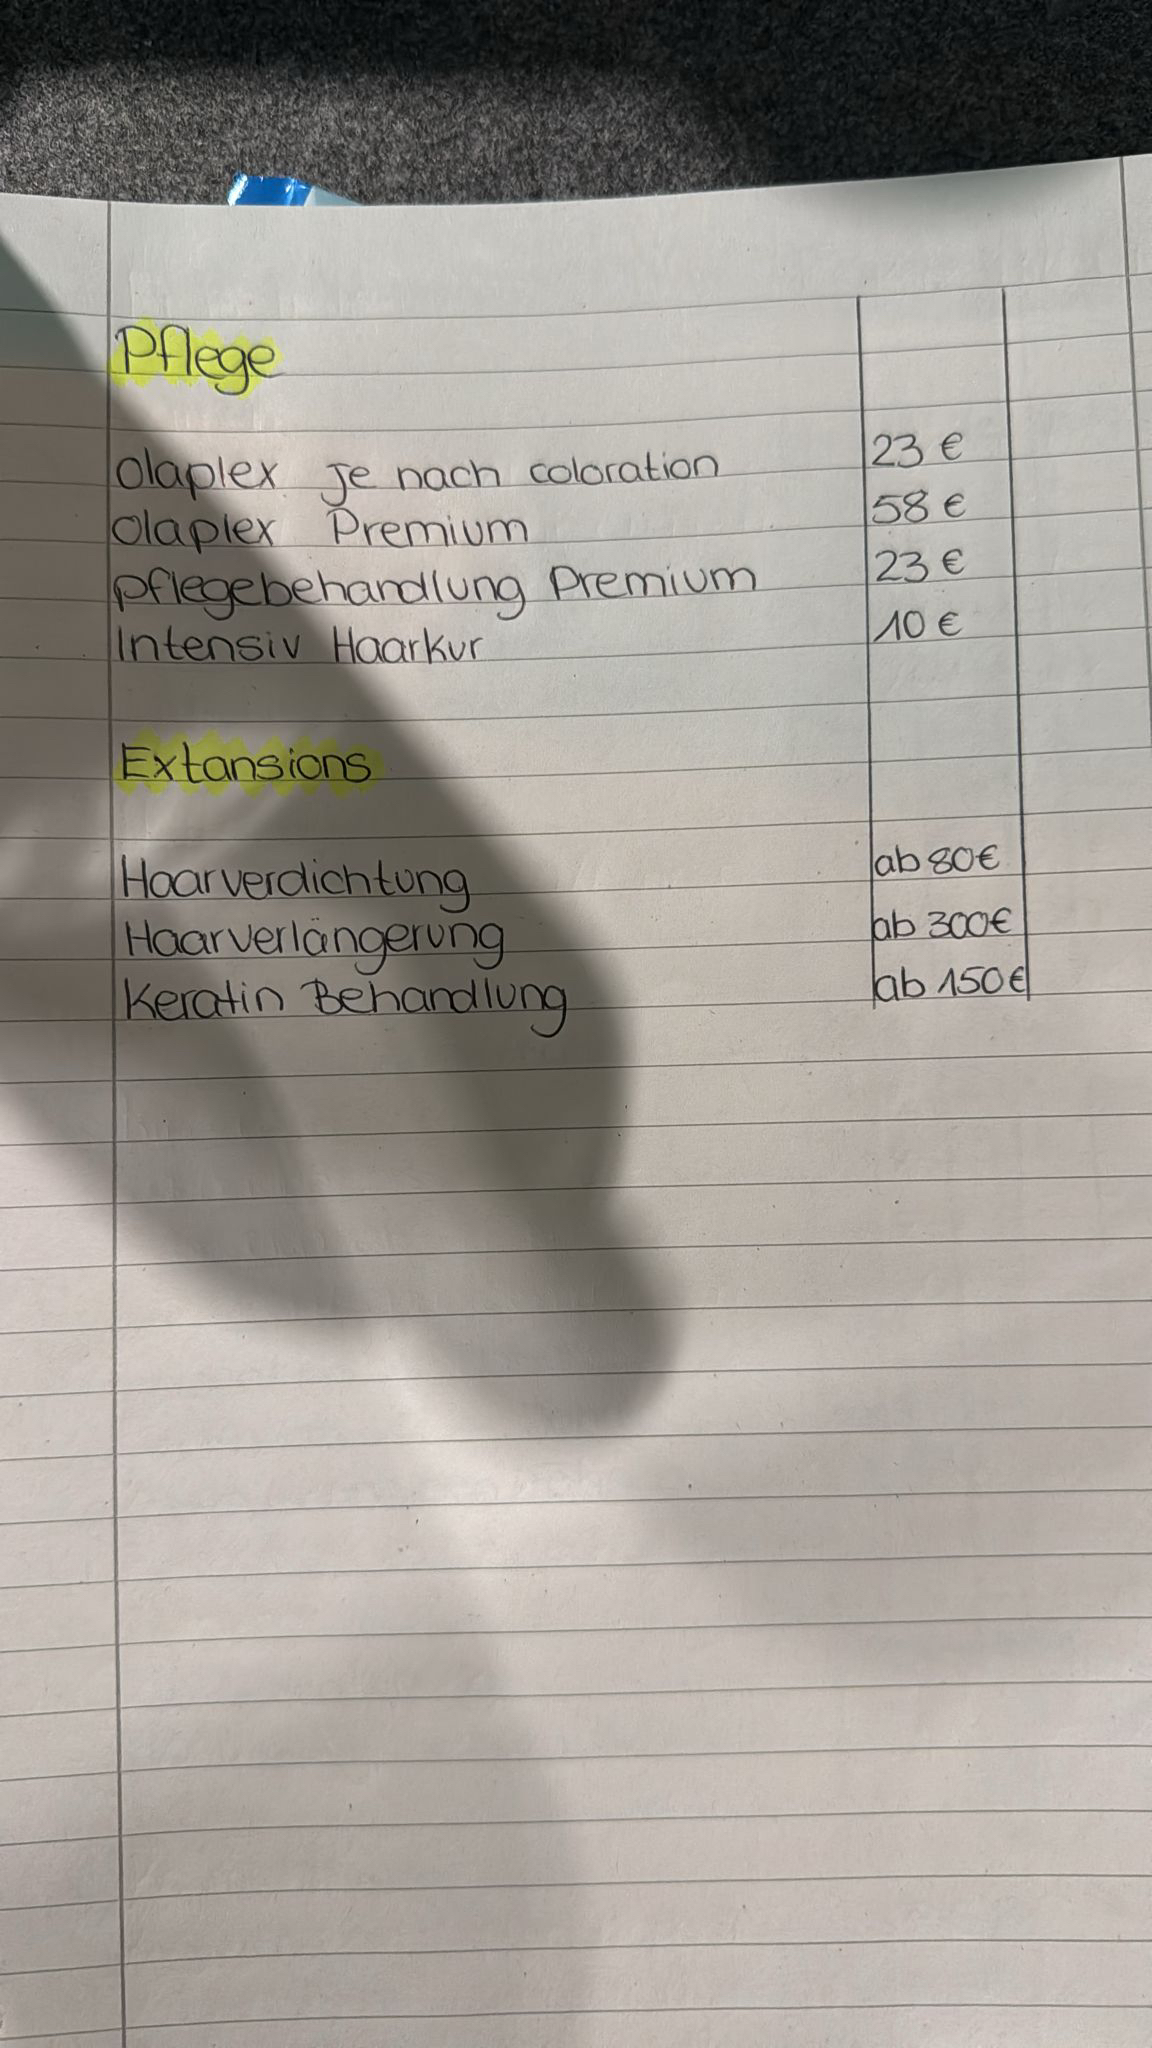 Pflege
Olaplex Je nach coloration 23 €
Olaplex Premium 58 €
pflegebehandlung Premium 23 €
Intensiv Haarkur 10 €
Extansions
Haarverdichtung ab 80€
Haarverlängerung ab 300€
Keratin Behandlung ab 150€